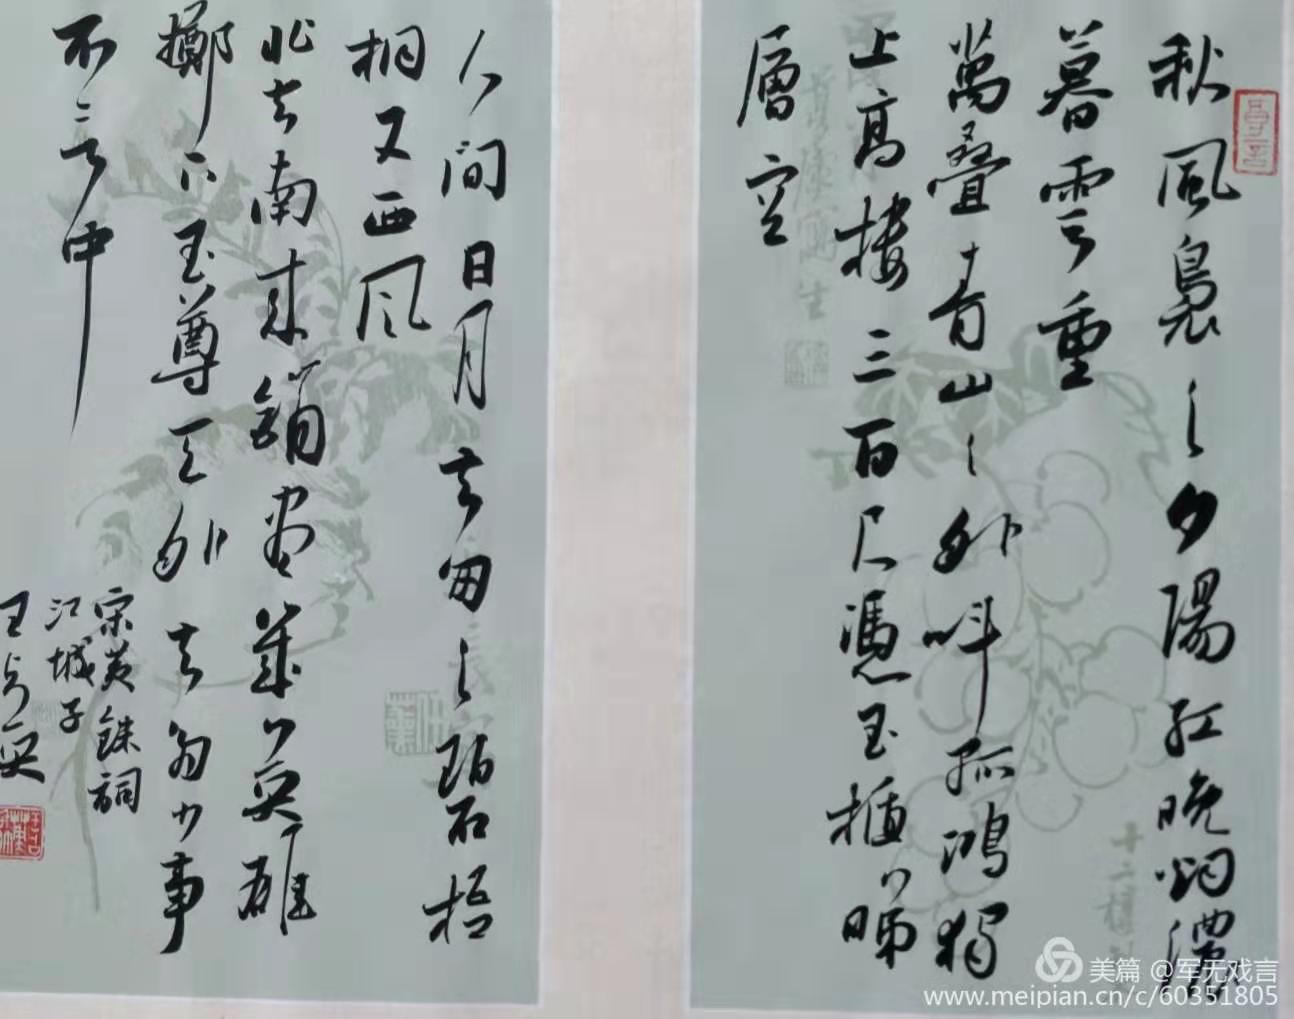 秋風裊〻夕陽紅晚烟濃
暮雲重
萬疊青山〻外叫孤鴻獨
上高樓三百尺憑玉楯睇
層空
人間日月去匆〻碧梧
桐又西风
北去南來銷盡幾英雄
擲下玉尊天外去多少事
不言中
宋黃銖詞
江城子
美篇 @军无戏言
www.meipian.cn/c/60351805